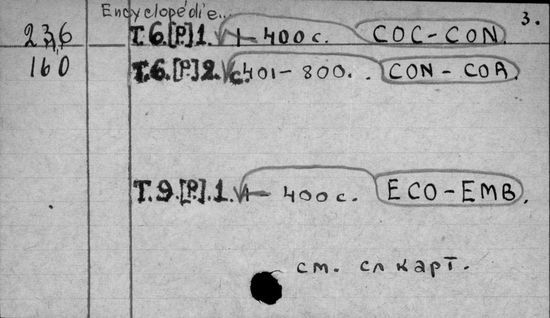 Encyclopédie.. 3.
236 T.6.[P]1. 1 – 400 с. COC – CON
160 T.6.[P]2. с. 401 – 800. . CON – COR
T.9.[P].1. 1 – 400 с. ECO – EMB.
см. сл карт.